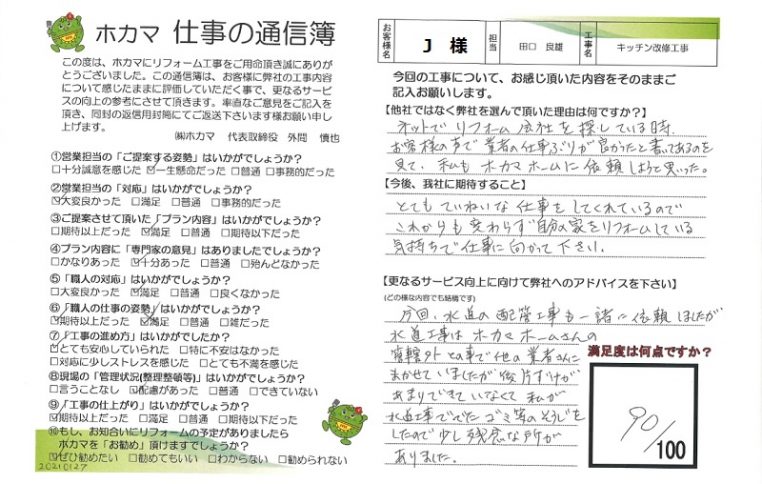 ホカマ 仕事の通信簿
この度は、ホカマにリフォーム工事をご用命頂き誠にありが
とうございました。この通信簿は、お客様に弊社の工事内容
について感じたままに評価していただく事で、更なるサービ
スの向上の参考にさせて頂きます。率直なご意見をご記入を
頂き、同封の返信用封筒にてご返送下さいます様お願い申し
上げます。
㈱ホカマ 代表取締役 外間 慎也
①営業担当の「ご提案する姿勢」はいかがでしょうか?
□十分誠意を感じた ☑一生懸命だった □普通 □事務的だった
②営業担当の「対応」はいかがでしょうか?
☑大変良かった □満足 □普通 □事務的だった
③ご提案させて頂いた「プラン内容」はいかがでしょうか?
□期待以上だった ☑満足 □普通 □期待以下だった
④プラン内容に「専門家の意見」はありましたでしょうか?
□かなりあった ☑十分あった □普通 □殆んどなかった
⑤「職人の対応」はいかがでしょうか?
□大変良かった ☑満足 □普通 □良くなかった
⑥「職人の仕事の姿勢」はいかがでしょうか?
☑期待以上だった ☑満足 □普通 □雑だった
⑦「工事の進め方」はいかがでしたか?
☑とても安心していられた □特に不安はなかった
□対応に少しストレスを感じた □とても不満を感じた
⑧現場の「管理状況(整理整頓等)」はいかがでしょうか?
□言うことなし ☑配慮があった □普通 □できていない
⑨「工事の仕上がり」はいかがでしょうか?
☑期待以上だった □満足 □普通 □期待以下だった
⑩もし、お知合いにリフォームの予定がありましたら
ホカマを「お勧め」頂けますでしょうか?
☑ぜひ勧めたい □勧めてもいい □わからない □勧められない
20210127
お客様名 J 様 担当 田口 良雄 工事名 キッチン改修工事
今回の工事について、お感じ頂いた内容をそのままご
記入お願いします。
【他社ではなく弊社を選んで頂いた理由は何ですか?】
ネットでリフォーム会社を探している時、
お客様の声で業者の仕事ぶりが良かったと書いてあるのを
見て、私もホカマホームに依頼しようと思った。
【今後、我社に期待すること】
とてもていねいな仕事をしてくれているので
これからも変わらず自分の家をリフォームしている
気持ちで仕事に向かって下さい。
【更なるサービス向上に向けて弊社へのアドバイスを下さい】
(どの様な内容でも結構です)
今回、水道の配管工事も一諸に依頼しましたが
水道工事はホカマホームさんの
管轄外との事で他の業者さんに
まかせていましたが後片ずけが
あまりできていなくて私が
水道工事ででたゴミ等のそうじを
したので少し残念な所が
ありました。
満足度は何点ですか?
90/100